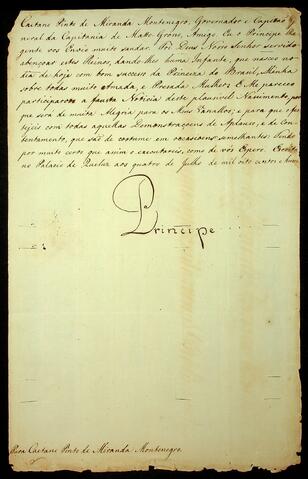 Caetano Pinto de Miranda Montenegro, Governador e Capitaõ General
da Capitania de Matto Groso, Amigo. Eu o Principe Re
gente vos Envio muito saudar. Foi Deus Nosso Senhor servido
abençoar estes Reinos, dando-lhes huma Infante, que nasceo no
dia de hoje com bom successo da Princeza do Brazil, Minha
sobre todas muito amada, e Prezada Mulher: E Me pareceo
participarvos a fausta Noticia deste plausivel Nascimento, por
que será de muita Alegria para os Meus Vassallos; e para que o
tejeis com todas aquellas Demonstraçoens de Aplauso, e de Con
tentamento, que saõ de costume em occasioens semelhantes. Tendo
por muito certo que assim o executareis, como de vós Espero. Escrita
no Palacio de Queluz aos quatro de Julho de mil oito centos e
Principe
Para Caetano Pinto de Miranda Montenegro.